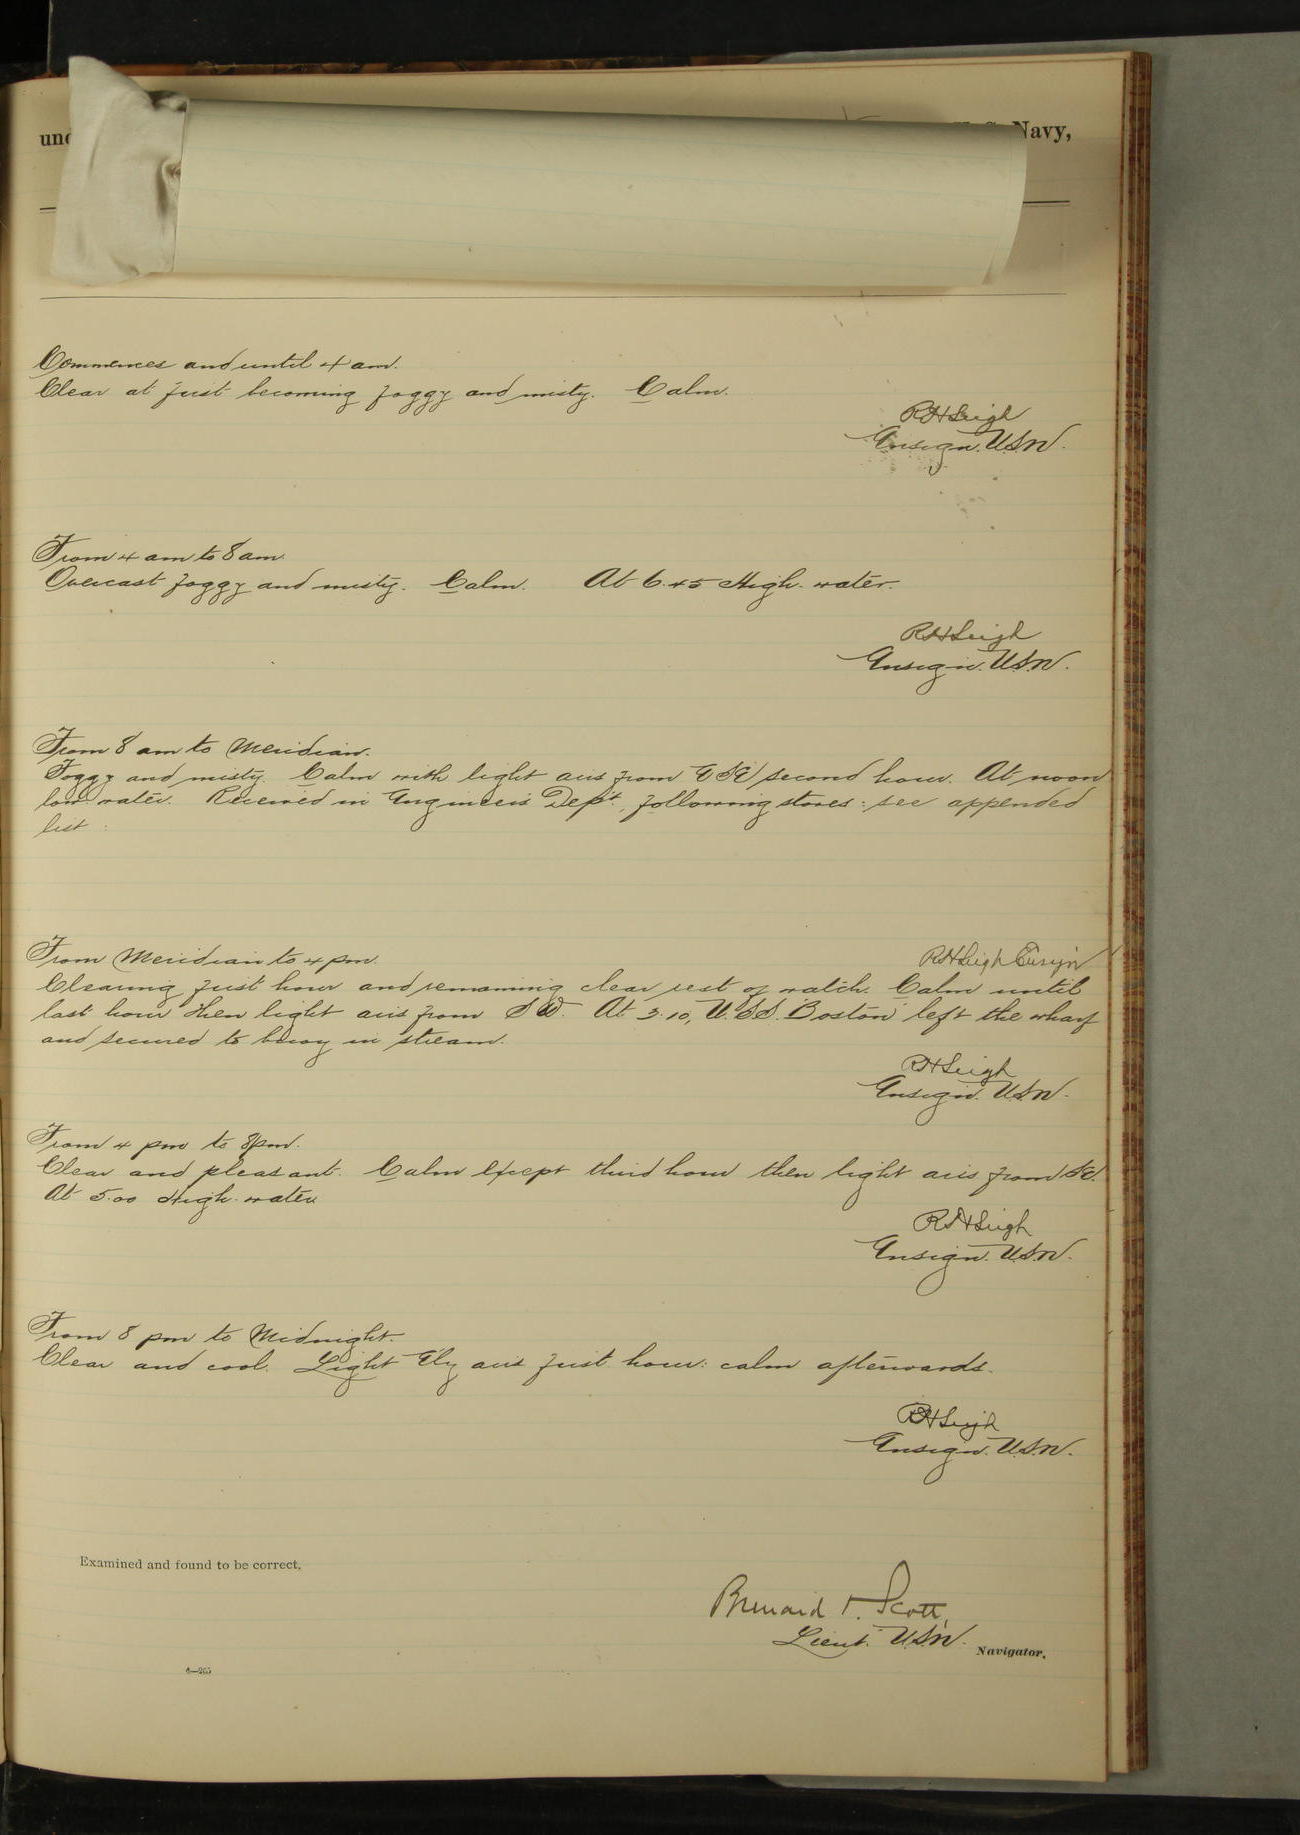 Navy,
Commences and until 4 am.
Clear at first becoming foggy and misty. Calm.
R H Leigh
Ensign. U.S.N.
From 4 am to 8 am.
Overcast foggy and misty. Calm. At 6.45 High-water.
R H Leigh
Ensign. U.S.N.
From 8 am to Meridian.
Foggy and misty. Calm with light airs from second hour. At noon
low water. Received in Engineers Dep't, following stores: see appended
list.
From Meridian to 4 pm.
R H Leigh Ensign
Clearing first hour and remaining clear rest of watch. Calm until
last hour then light airs from S W. At 3.10, U.S.S. Boston left the wharf
and secured to buoy in stream.
R H Leigh
Ensign. U.S.N.
From 4 pm to 8 pm.
Clear and pleasant. Calm except third hour then light airs from SE.
At 5.00 High-water
R H Leigh
Ensign. U.S.N.
From 8 pm to Midnight.
Clear and cool. Light E'ly airs first hour: calm afterwards.
R H Leigh
Ensign. U.S.N.
Examined and found to be correct,
Scott,
Lieut. U.S.N. Navigator.